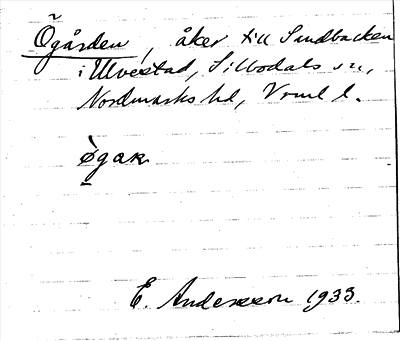 Ögården, åker till Sundbacken
i Ulvestad, Sillbodals sn,
Nordmarks hd, Vrml l.
øgaʀ
E. Andersson 1933.